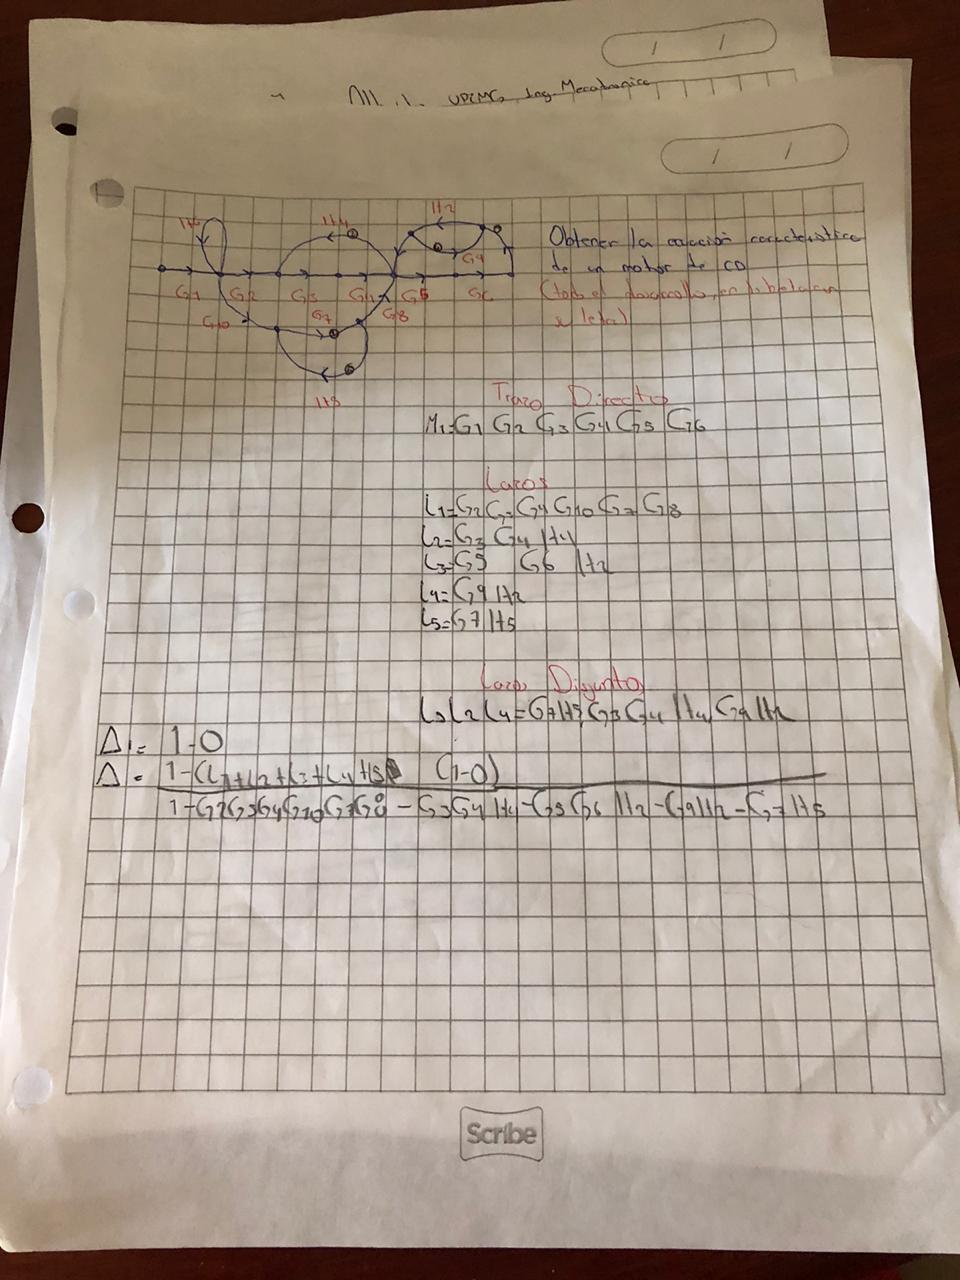 UPCMG Ing. Mecatronica
H4
H2
G9
G1 G2 G3 G4 G5 G6
G10
G7
G8
H5
Obtener la ecuación característica
de un motor de CD
Trazo Directo
M1=G1 G2 G3 G4 G5 G6
Lazos
L1=G2 G3 G4 G10 G7 G8
L2=G3 G4 H4
L3=G5 G6 H2
L4=G9 H2
L5=G7 H5
Lazos Disjuntos
L5 L2 L4=G7 H5 G3 G4 H4 G9 H2
Δ1= 1-0
Δ = 1-(L1+L2+L3+L4+L5) (1-0)
1-G2G3G4G10G7G8 - G3G4H4-G5G6 H2-G9H2-G7H5
Scribe